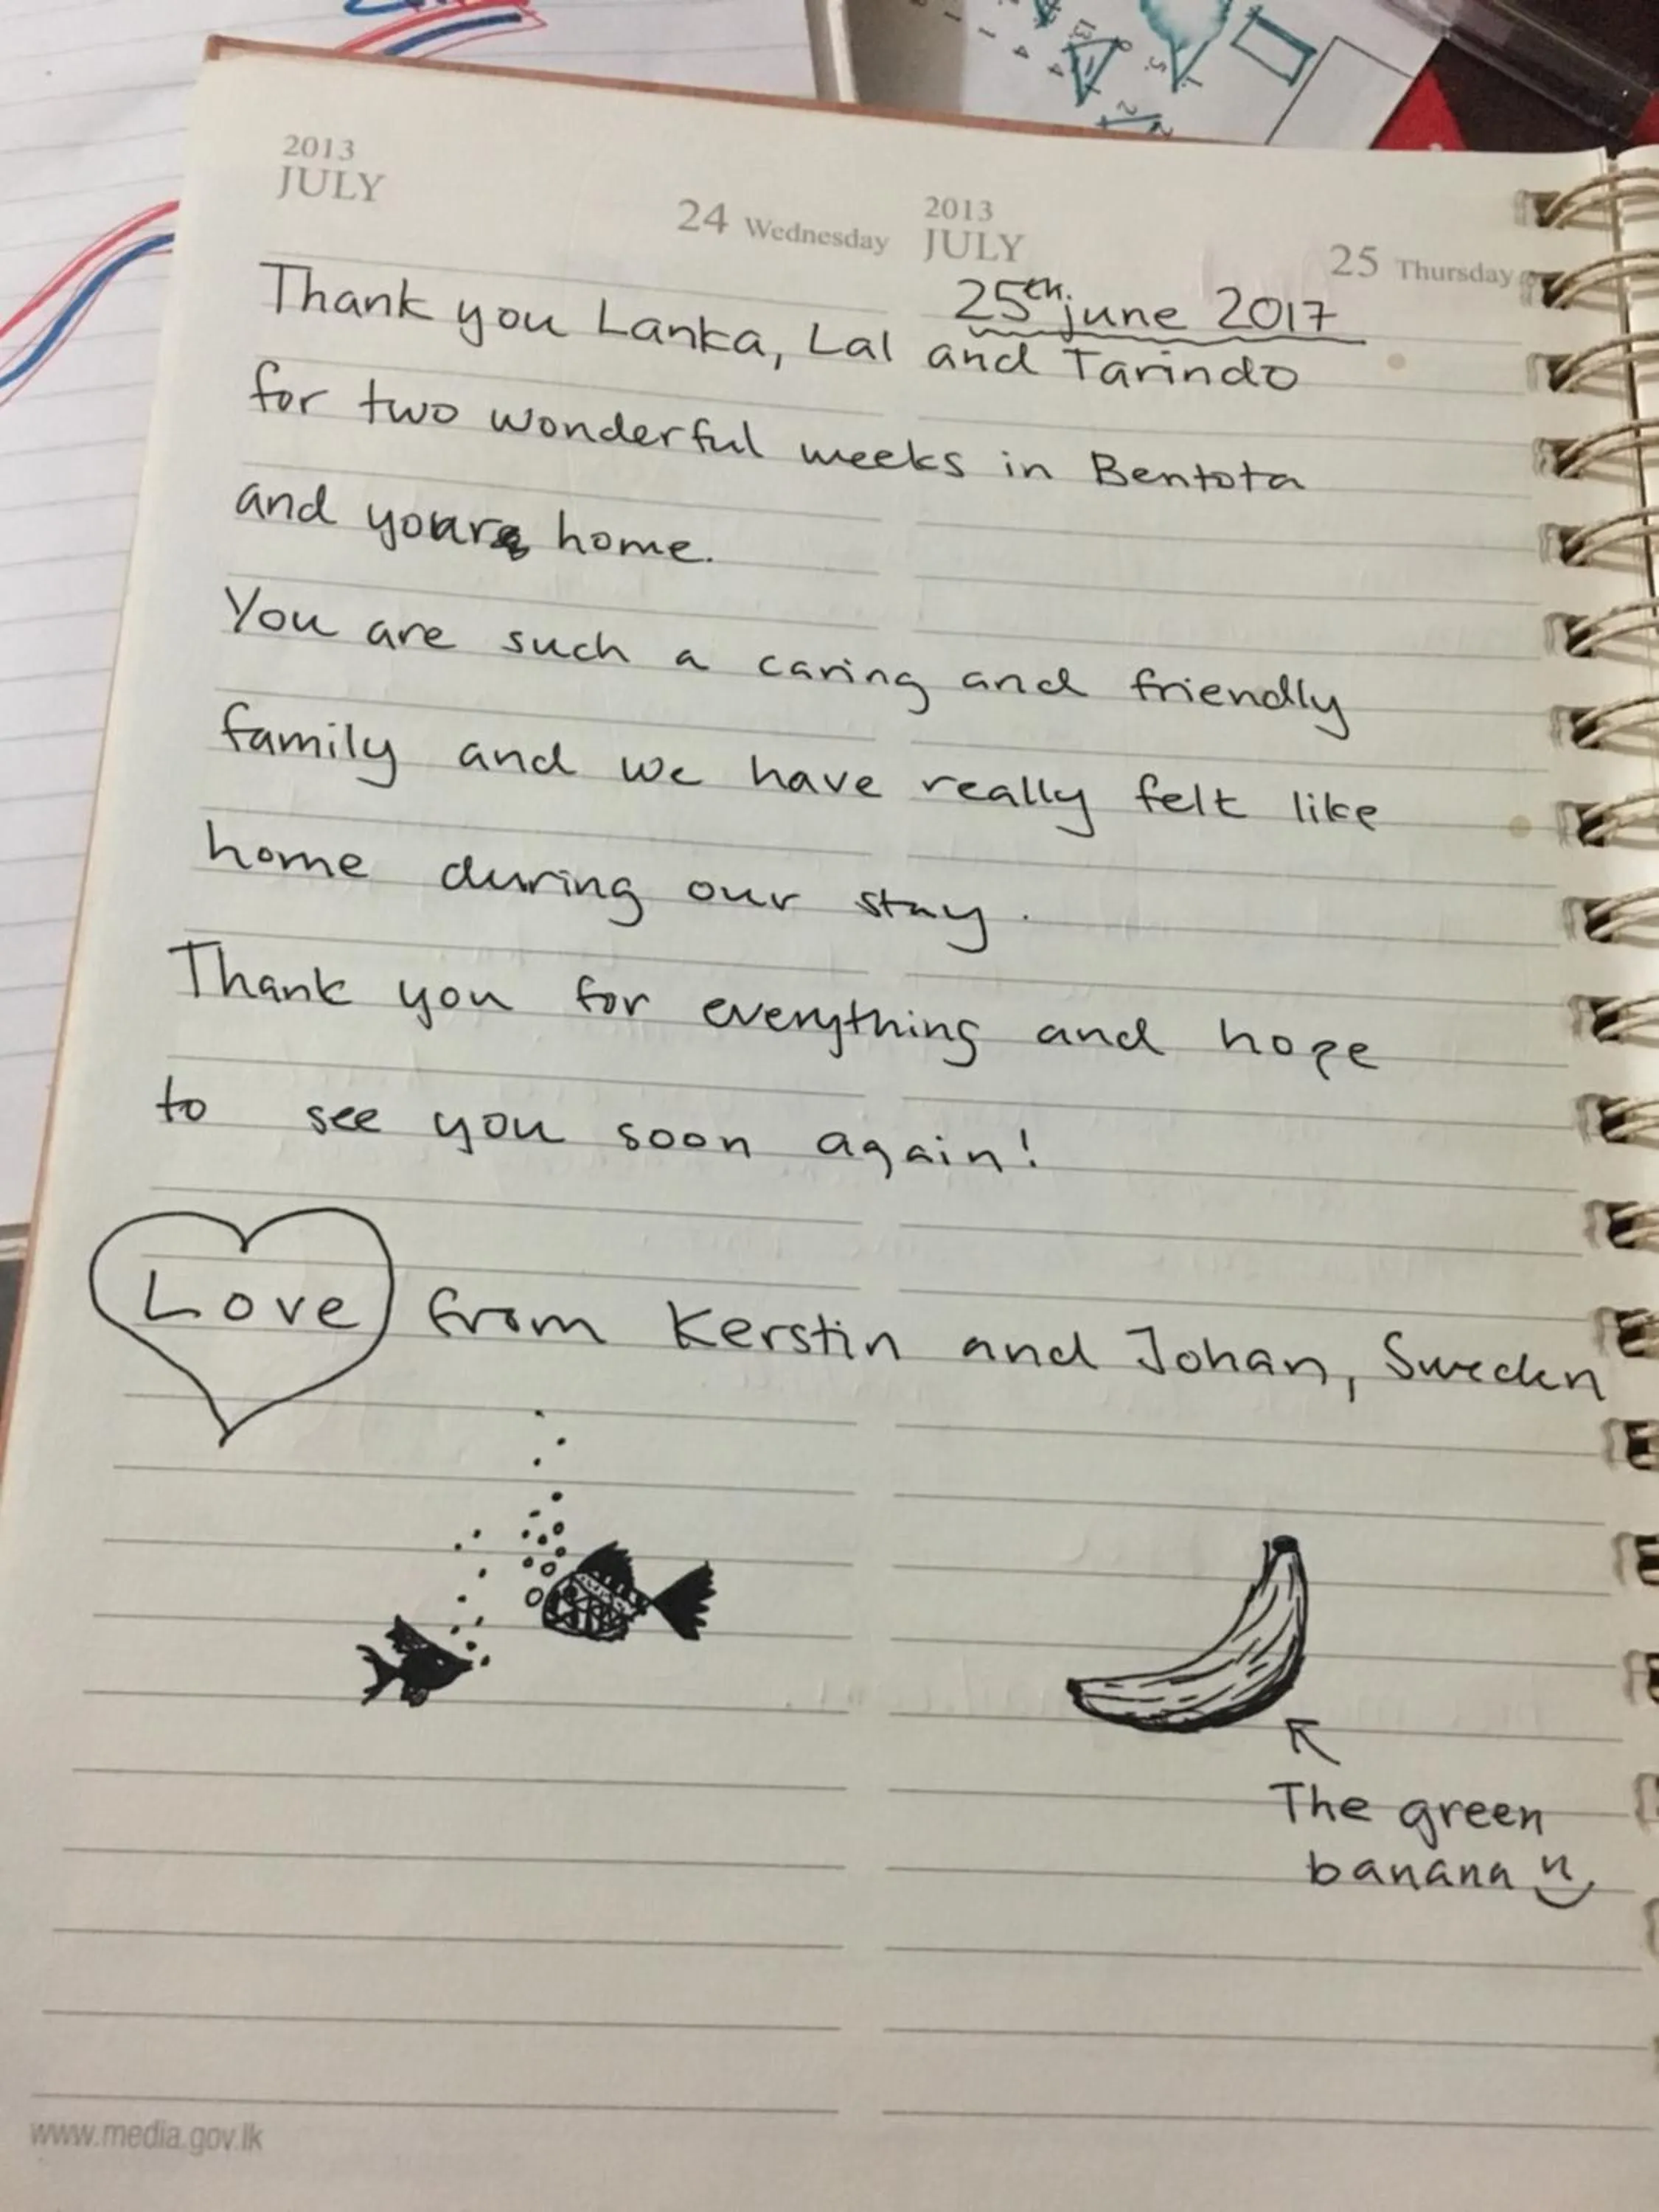 2013
JULY
24 Wednesday
2013
JULY
25 Thursday
25th june 2017
Thank you Lanka, Lal and Tarindo
for two wonderful weeks in Bentota
and your home.
You are such a caring and friendly
family and we have really felt like
home during our stay.
Thank you for everything and hope
to see you soon again!
Love from Kerstin and Johan, Sweden
The green
banana
www.media.gov.lk